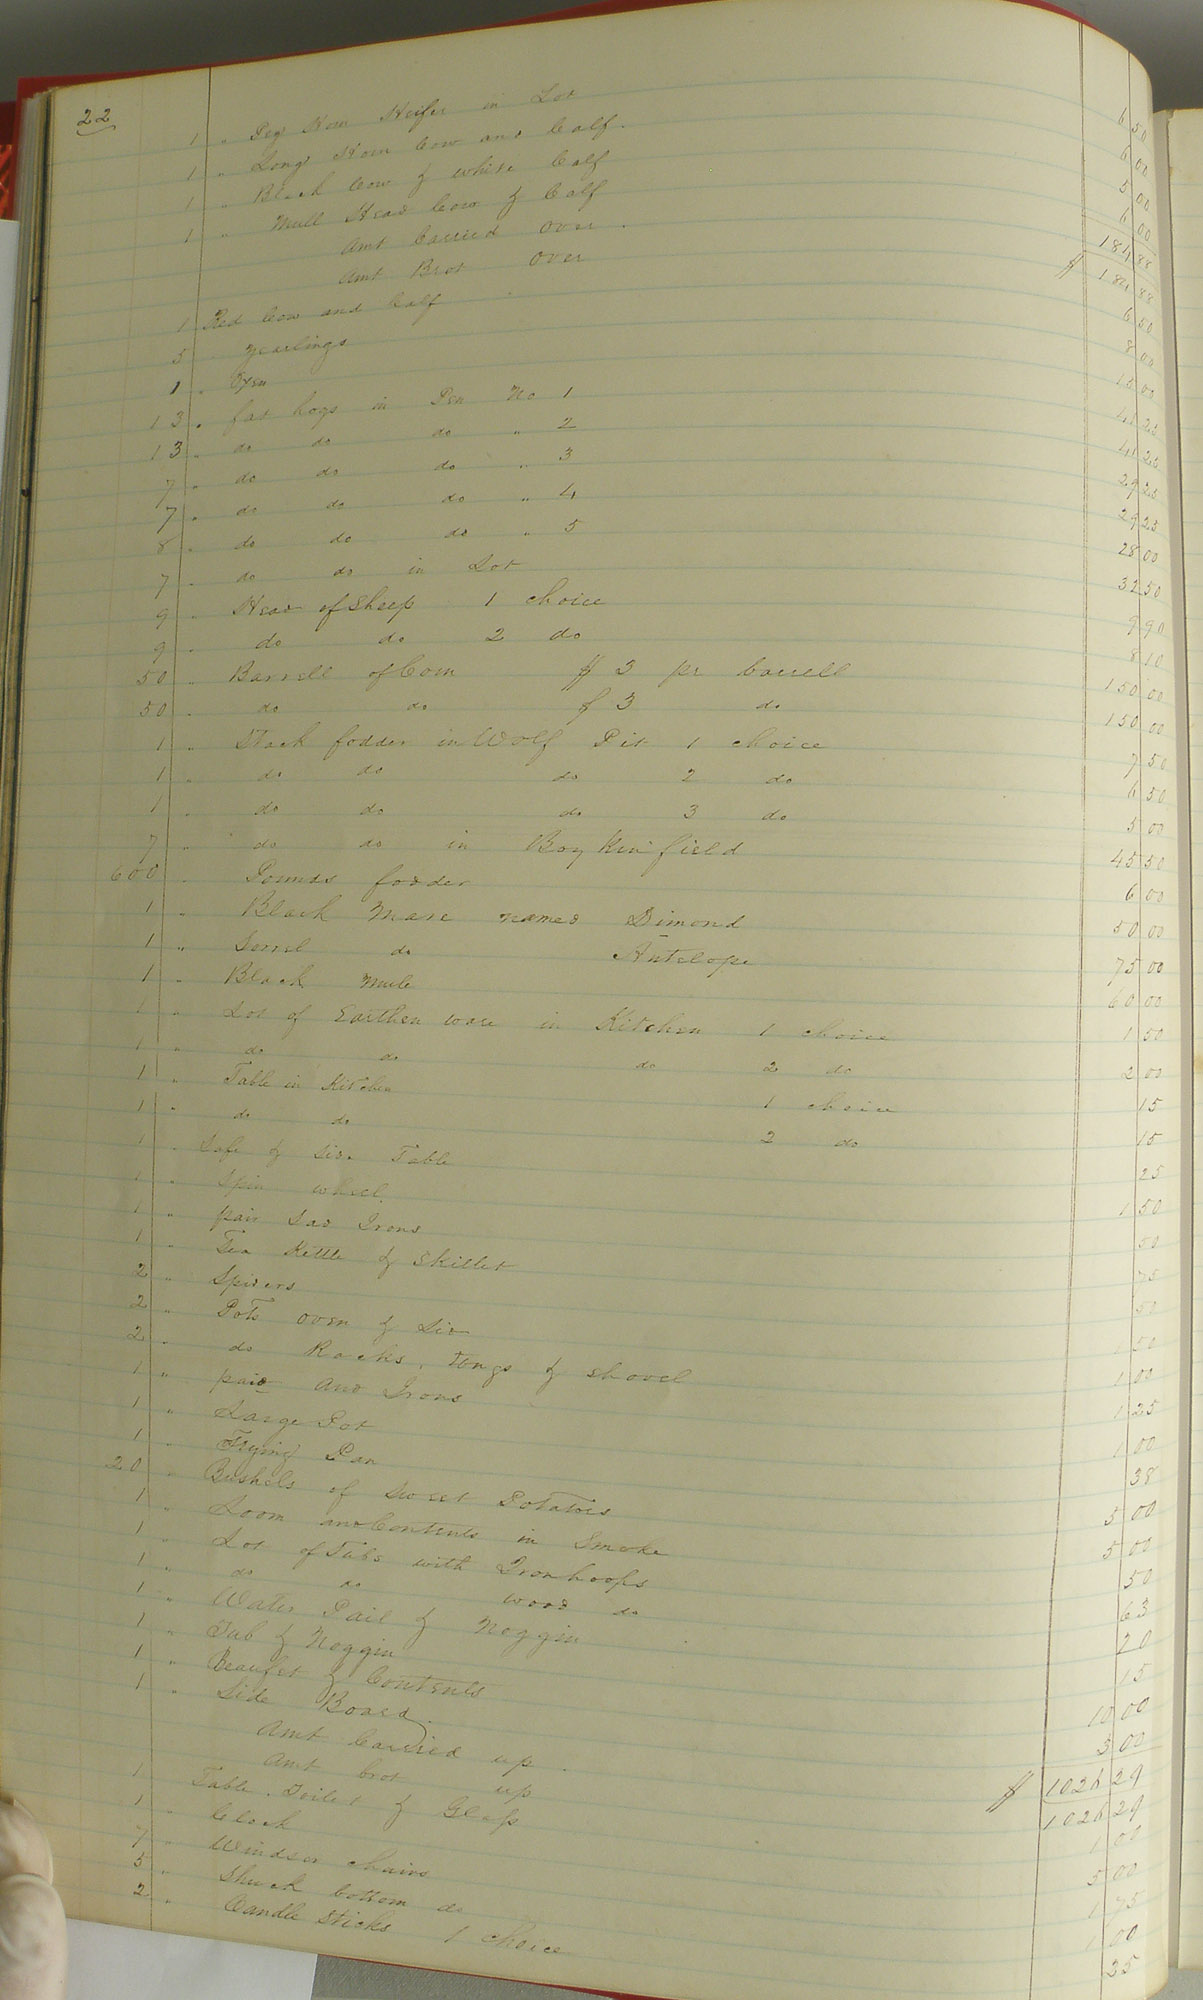 22
1 " Peg Horn Heifer in Lot 6 50
1 " Long Horn Cow and Calf. 6 00
1 " Black Cow & white Calf 5 00
1 " Mull Head Cow & Calf 6 00
Amt Carried Over. 184 88
Amt Brot Over $ 184 88
1 Red Cow and Calf 6 50
5 yearlings 8 00
1 " Oxen 15 00
13 " fat hogs in Pen No 1 41 25
13 " do do do " 2 41 25
7 " do do do " 3 29 25
7 " do do do " 4 29 25
8 " do do do " 5 28 00
7 " do do in Lot 32 50
9 " Head of Sheep 1 choice 9 90
9 " do do 2 do 8 10
50 " Barrell of Corn $ 3 pr barrell 150 00
50 " do do $ 3 do 150 00
1 " Stack fodder in Wolf Pit 1 choice 7 50
1 " do do do 2 do 6 50
1 " do do do 3 do 5 00
7 " do do in Boykin field 45 50
600 " Pounds fodder 6 00
1 " Black Mare named Dimond 50 00
1 " Sorrel do Antelope 75 00
1 " Black Mule 60 00
1 " Lot of Earthen ware in Kitchen 1 choice 1 50
1 " do do do 2 do 2 00
1 " Table in Kitchen 1 choice 15
1 " do do 2 do 15
1 " Safe & Side Table 25
1 " Spin wheel. 1 50
1 " pair Sad Irons 50
1 " Tea Kettle & Skillet 75
2 " Spiders 50
2 " Pots oven & Lid 50
2 " do Racks, tongs & shovel 1 00
1 " paid And Irons 1 25
1 " Large Pot 1 00
1 " Frying Pan 38
20 " Bushels of Sweet Potatoes 5 00
1 " Loom and Contents in Smoke 5 00
1 " Lot of Tubs with Iron hoops 50
1 " do do wood do 63
1 " Water Pail & Noggin 20
1 " Tub & Noggin 15
1 " Beaufet & Contents 10 00
1 " Side Board 3 00
Amt Carried up. $ 1026 29
Amt brot up 1026 29
1 Table. Toilet & Glass 1 00
1 " Clock 5 00
7 " Windsor chairs 1 75
5 " Shuck bottom do 1 00
2 " Candle Sticks 1 Choice 35